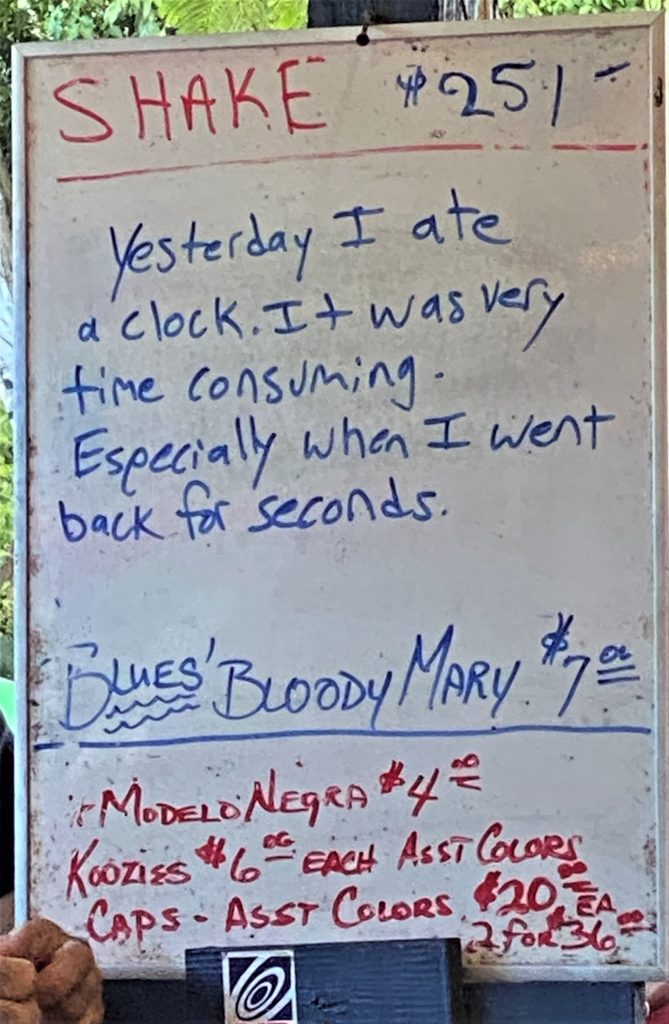 SHAKE $251-
Yesterday I ate
a clock. It was very
time consuming.
Especially when I went
back for seconds.
BLUES' BLOODY MARY $7 00
- MODELO NEGRA $4 00
KOOZIES $6 00 EACH ASST COLORS
CAPS - ASST COLORS $20 00 EA
2 for $36 00